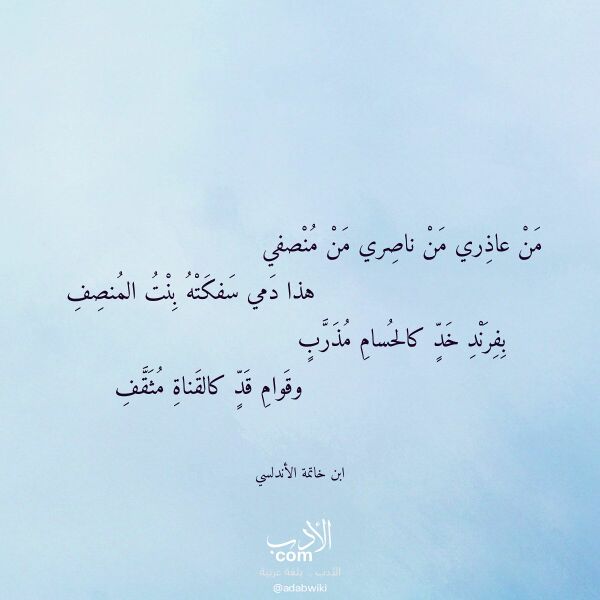 مَنْ عاذِري مَنْ ناصِري مَنْ مُنْصفي
هذا دَمي سَفكَتْهُ بِنْتُ المُنصِفِ
بِفِرَنْدِ خَدٍّ كالحُسامِ مُذَرَّبٍ
وقَوامِ قَدٍّ كالقَناةِ مُثَقَّفِ
ابن خاتمة الأندلسي
الأدب
com
الأدب .. بلغة عربية
@adabwiki